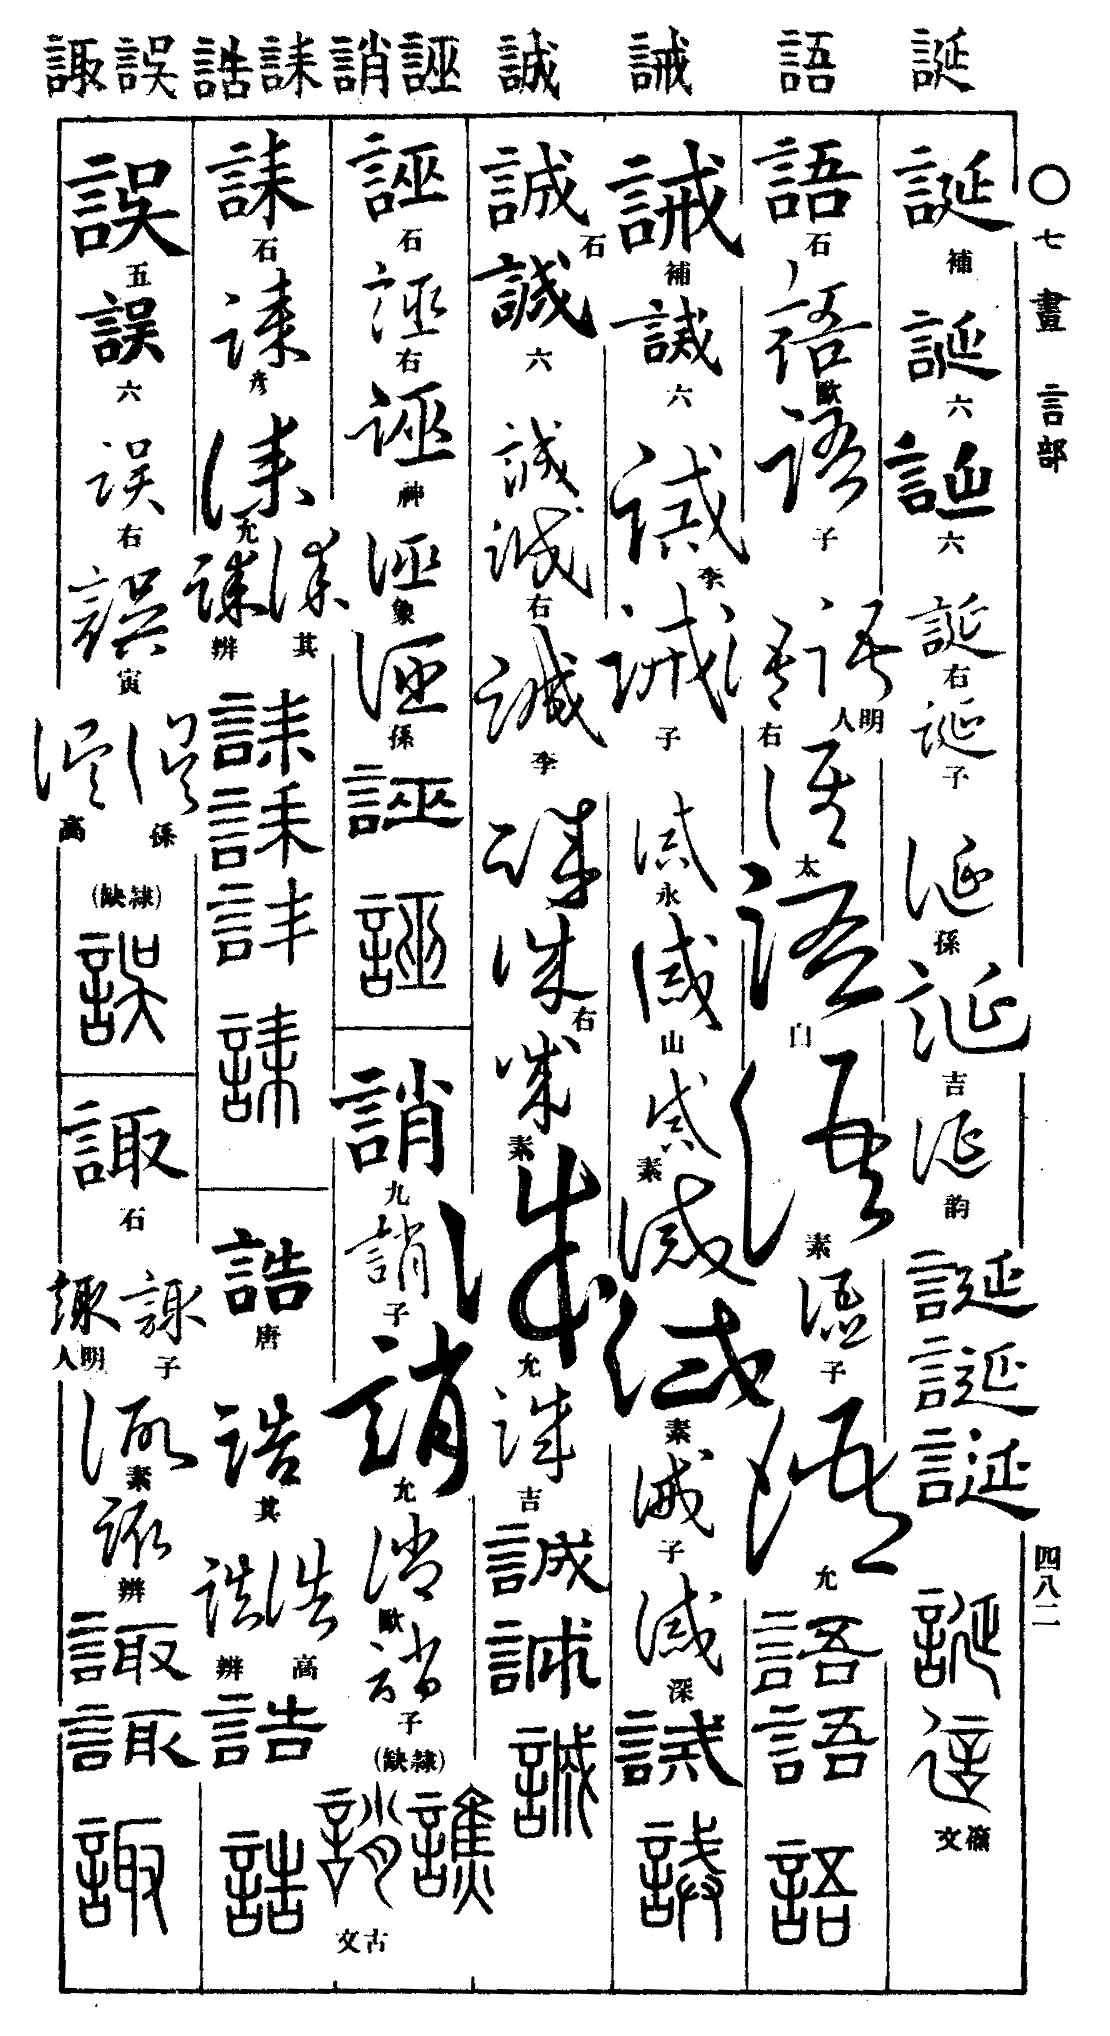 誕 語 誡 誠 誣 誚 誄 誥 誤 諏
〇七畫 言部 四八二
誕補 誕六 誕六 誕右 誕子 誕孫 誕吉 誕韵 誕 誕 誕 誕 䇄籀文
語石 語歐 語子 語明人 語右 語太 語门 語素 語子 語允 語 語 語
誡補 誡六 誡李 誡子 誡永 誡山 誡素 誡 誡素 誡子 誡深 誡 誡
誠石 誠六 誠 誠右 誠李 誠 誠右 誠素 誠允 誠吉 誠 誠 誠
誣石 誣右 誣神 誣象 誣孫 誣 誣
誚九 誚子 誚允 誚歐 誚子 (隸缺) 譙 誚古文
誄石 誄彦 誄允 誄其 誄辨 誄 誄 誄 誄
誥唐 誥其 誥高 誥辨 誥 誥
誤五 誤六 誤右 誤寅 誤孫 誤高 (隸缺) 誤
諏石 諏子 諏明人 諏素 諏辨 諏 諏 諏